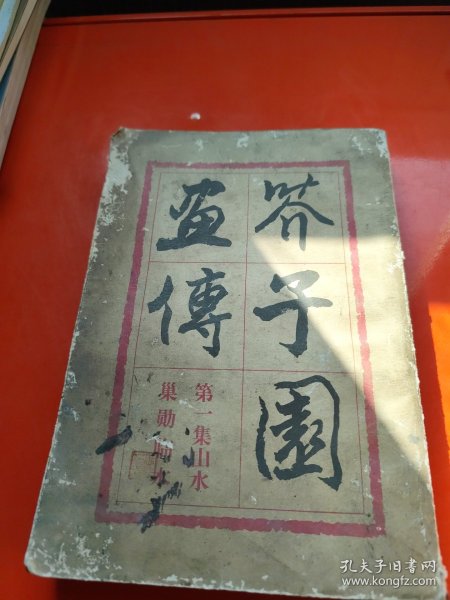 芥子園
畫傳
第一集山水
巢勋臨本
孔夫子旧书网
www.kongfz.com